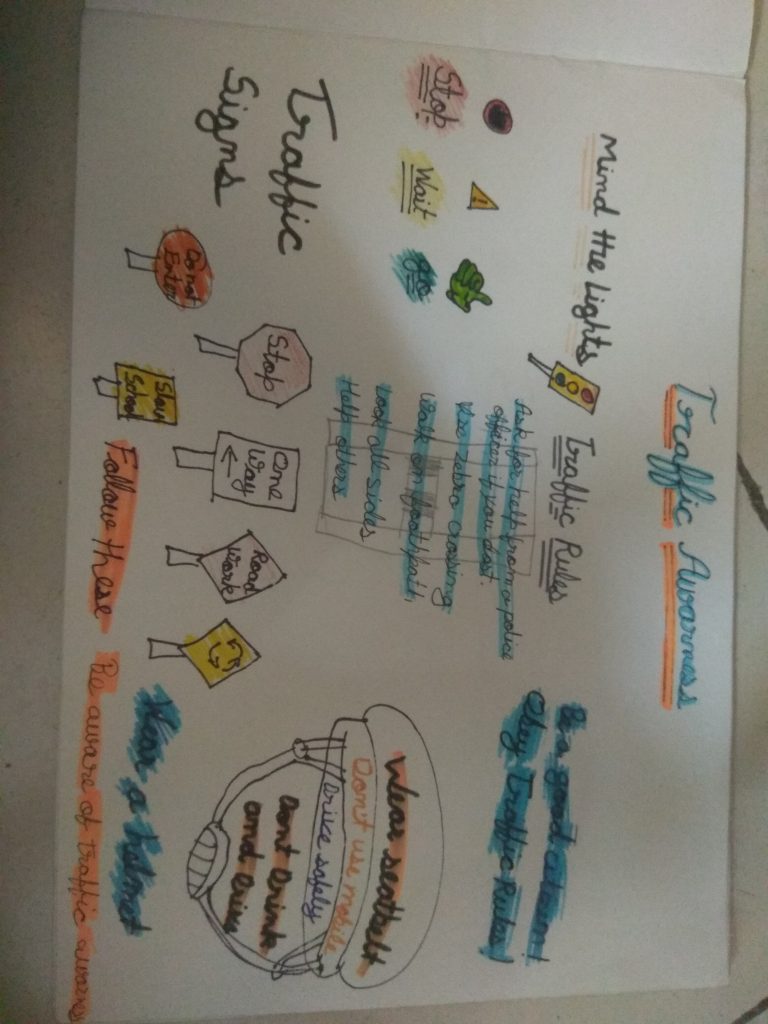 Traffic Awarness
Mind the Lights
Stop
Wait
go
Traffic Rules
Ask for help from a police
officer if you lost.
Use zebra crossing
Walk on footpath
Look all sides
Help others
Be a good citizen!
Obey Traffic Rules!
Traffic
Signs
Do not
Enter
Stop
Slow
School
One
Way
Road
Work
Wear seatbelt
Don't use mobile
Drive safely
Don't Drink
and Drive
Wear a helmet
Follow these
Be aware of traffic awarness